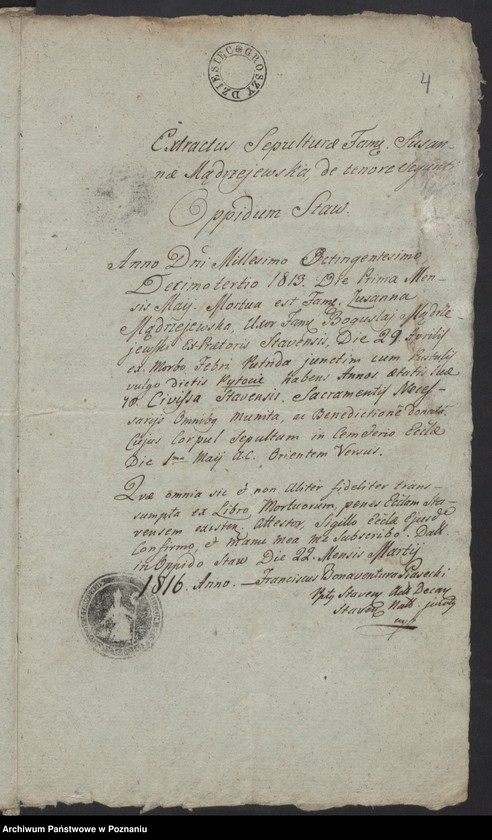 DZIESIĘC GROSZY
4
Extractus Sepulturæ Famę. Susan-
næ Mądrzejewska, de tenore seqūnti
Oppidum Staw.
Anno Dni Millesimo Octingentesimo
Decimotertio 1813. Die Prima Men-
sis Maij. Mortua est Famę. Zusanna
Mądrzejewska, Uxor Famj Boguslaj Mądrze
jewski ExPretoris Stavensis, Die 29. Aprilis
ex Morbo Febri Putrida junctim cum
vulgo dictis habens Annos ætatis suæ
70. Civissa Stavensis, Sacramentis Neces-
sarijs Omnibq Munita, ac Benedictione donata,
Cujus Corpus Sepultum in Cemeterio Ecclæ
Die 1ma Maij a.c. Orientem Versus.
Quæ omnia sic et non Aliter fideliter trans-
sumpta ex Libro Mortuorum, penes Eccłam Sta-
vensem existen. Attestor, Sigillo Ecclæ Ejusde
Confirmo, et Manu mea me Subscribo. Datt
in Oppido Staw Die 22. Mensis Martij
1816. Anno. — Franciscus Bonaventura Piasecki
Staven
Staven
mp
Archiwum Państwowe w Poznaniu